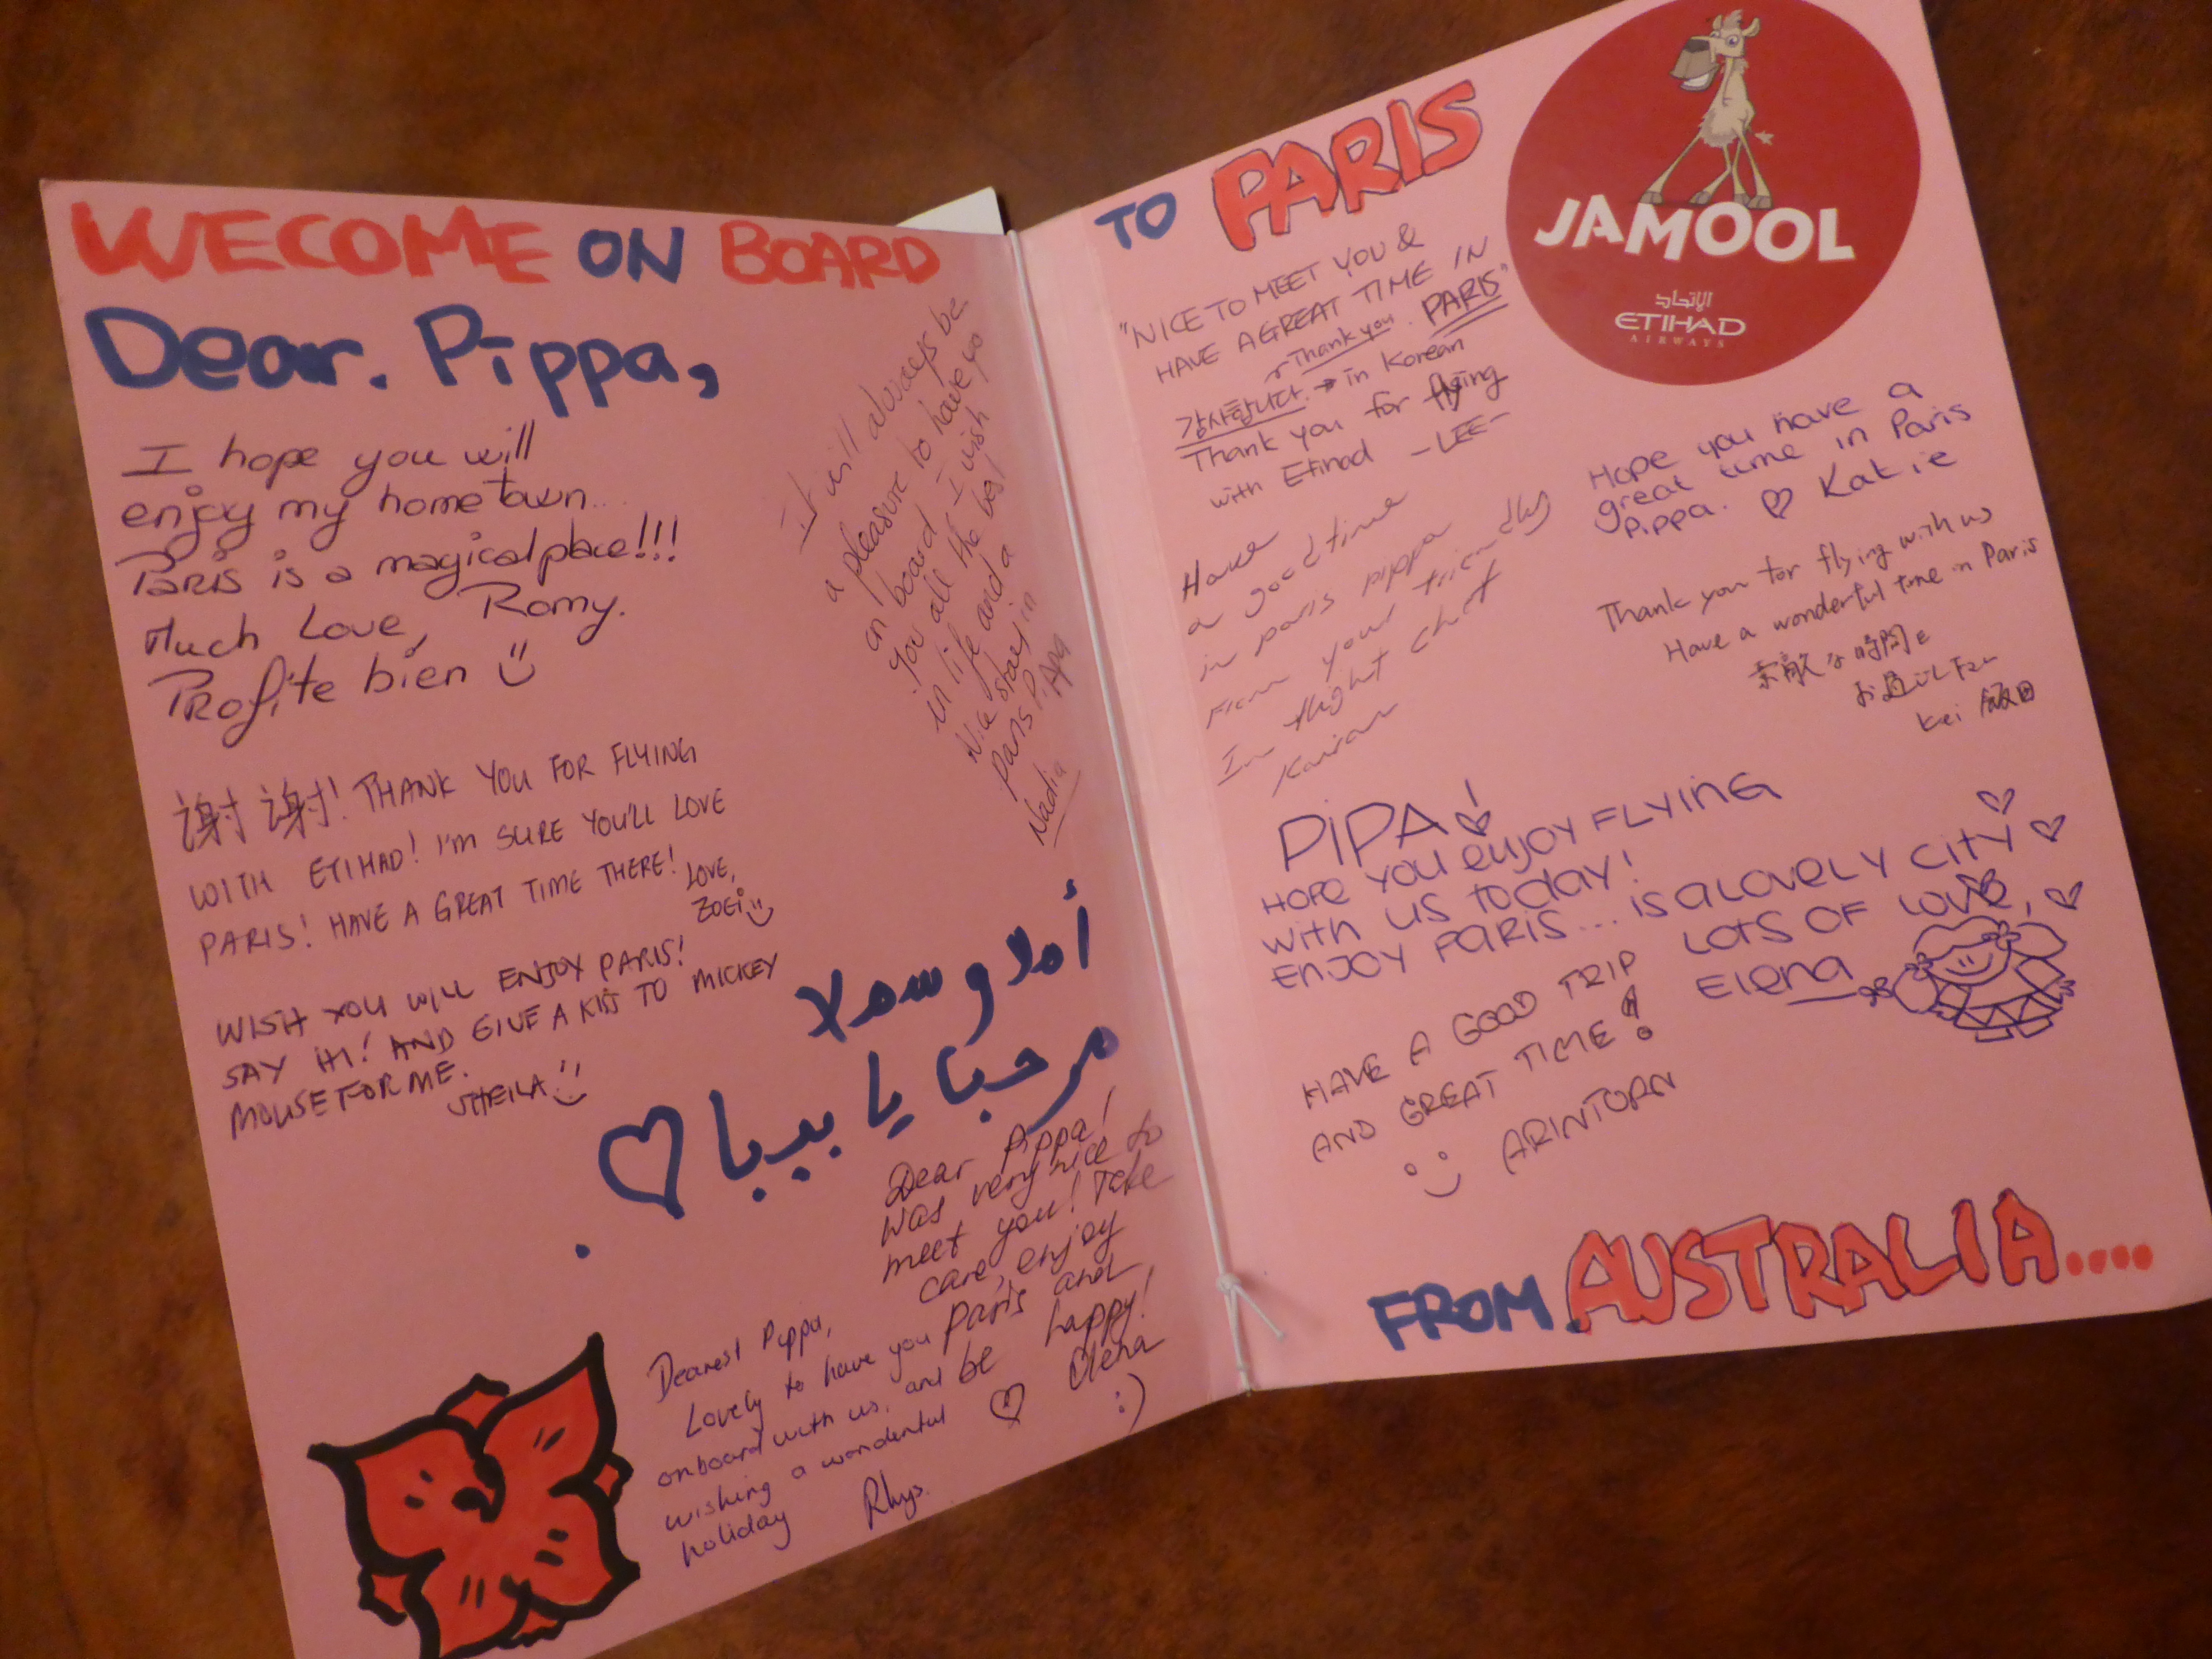 WECOME ON BOARD
Dear. Pippa,
I hope you will
enjoy my hometown...
Paris is a magical place!!!
Much Love, Romy.
Profite bien
It will always be
a pleasure to have yo
on board I wish
you all the best
in life and a
Nice stay in
Paris Pippa
Nadia
谢谢! THANK YOU FOR FLYING
WITH ETIHAD! I'M SURE YOU'LL LOVE
PARIS! HAVE A GREAT TIME THERE! LOVE,
ZOEI
WISH YOU WILL ENJOY PARIS!
SAY HI! AND GIVE A KISS TO MICKEY
MOUSE FOR ME.
SHEILA
أهلا و سهلا
مرحبا يا بيبا
Dear Pippa!
Was very nice to
meet you! Take
care, enjoy
Paris and
be happy!
Olena
:)
Dearest Pippa,
Lovely to have you
onboard with us, and
wishing a wonderful
holiday Rhys.
TO PARIS
JAMOOL
الإتحاد
ETIHAD
AIRWAYS
"NICE TO MEET YOU &
HAVE A GREAT TIME IN
PARIS"
Thank you.
감사합니다. → in Korean
Thank you for flying
with Etihad -LEE-
Have
a good time
in paris pippa
From your friendly
In flight chef
Hope you have a
great time in Paris
Pippa. ♡ Katie
Thank you for flying with us
Have a wonderful time in Paris
素敵な時間を
お過ごし下さい
Kei 飯田
PIPA!
HOPE YOU ENJOY FLYING
WITH US TODAY!
ENJOY PARIS... IS A LOVELY CITY
LOTS OF LOVE,
Elena
HAVE A GOOD TRIP
AND GREAT TIME!
ARINTORN
FROM. AUSTRALIA....